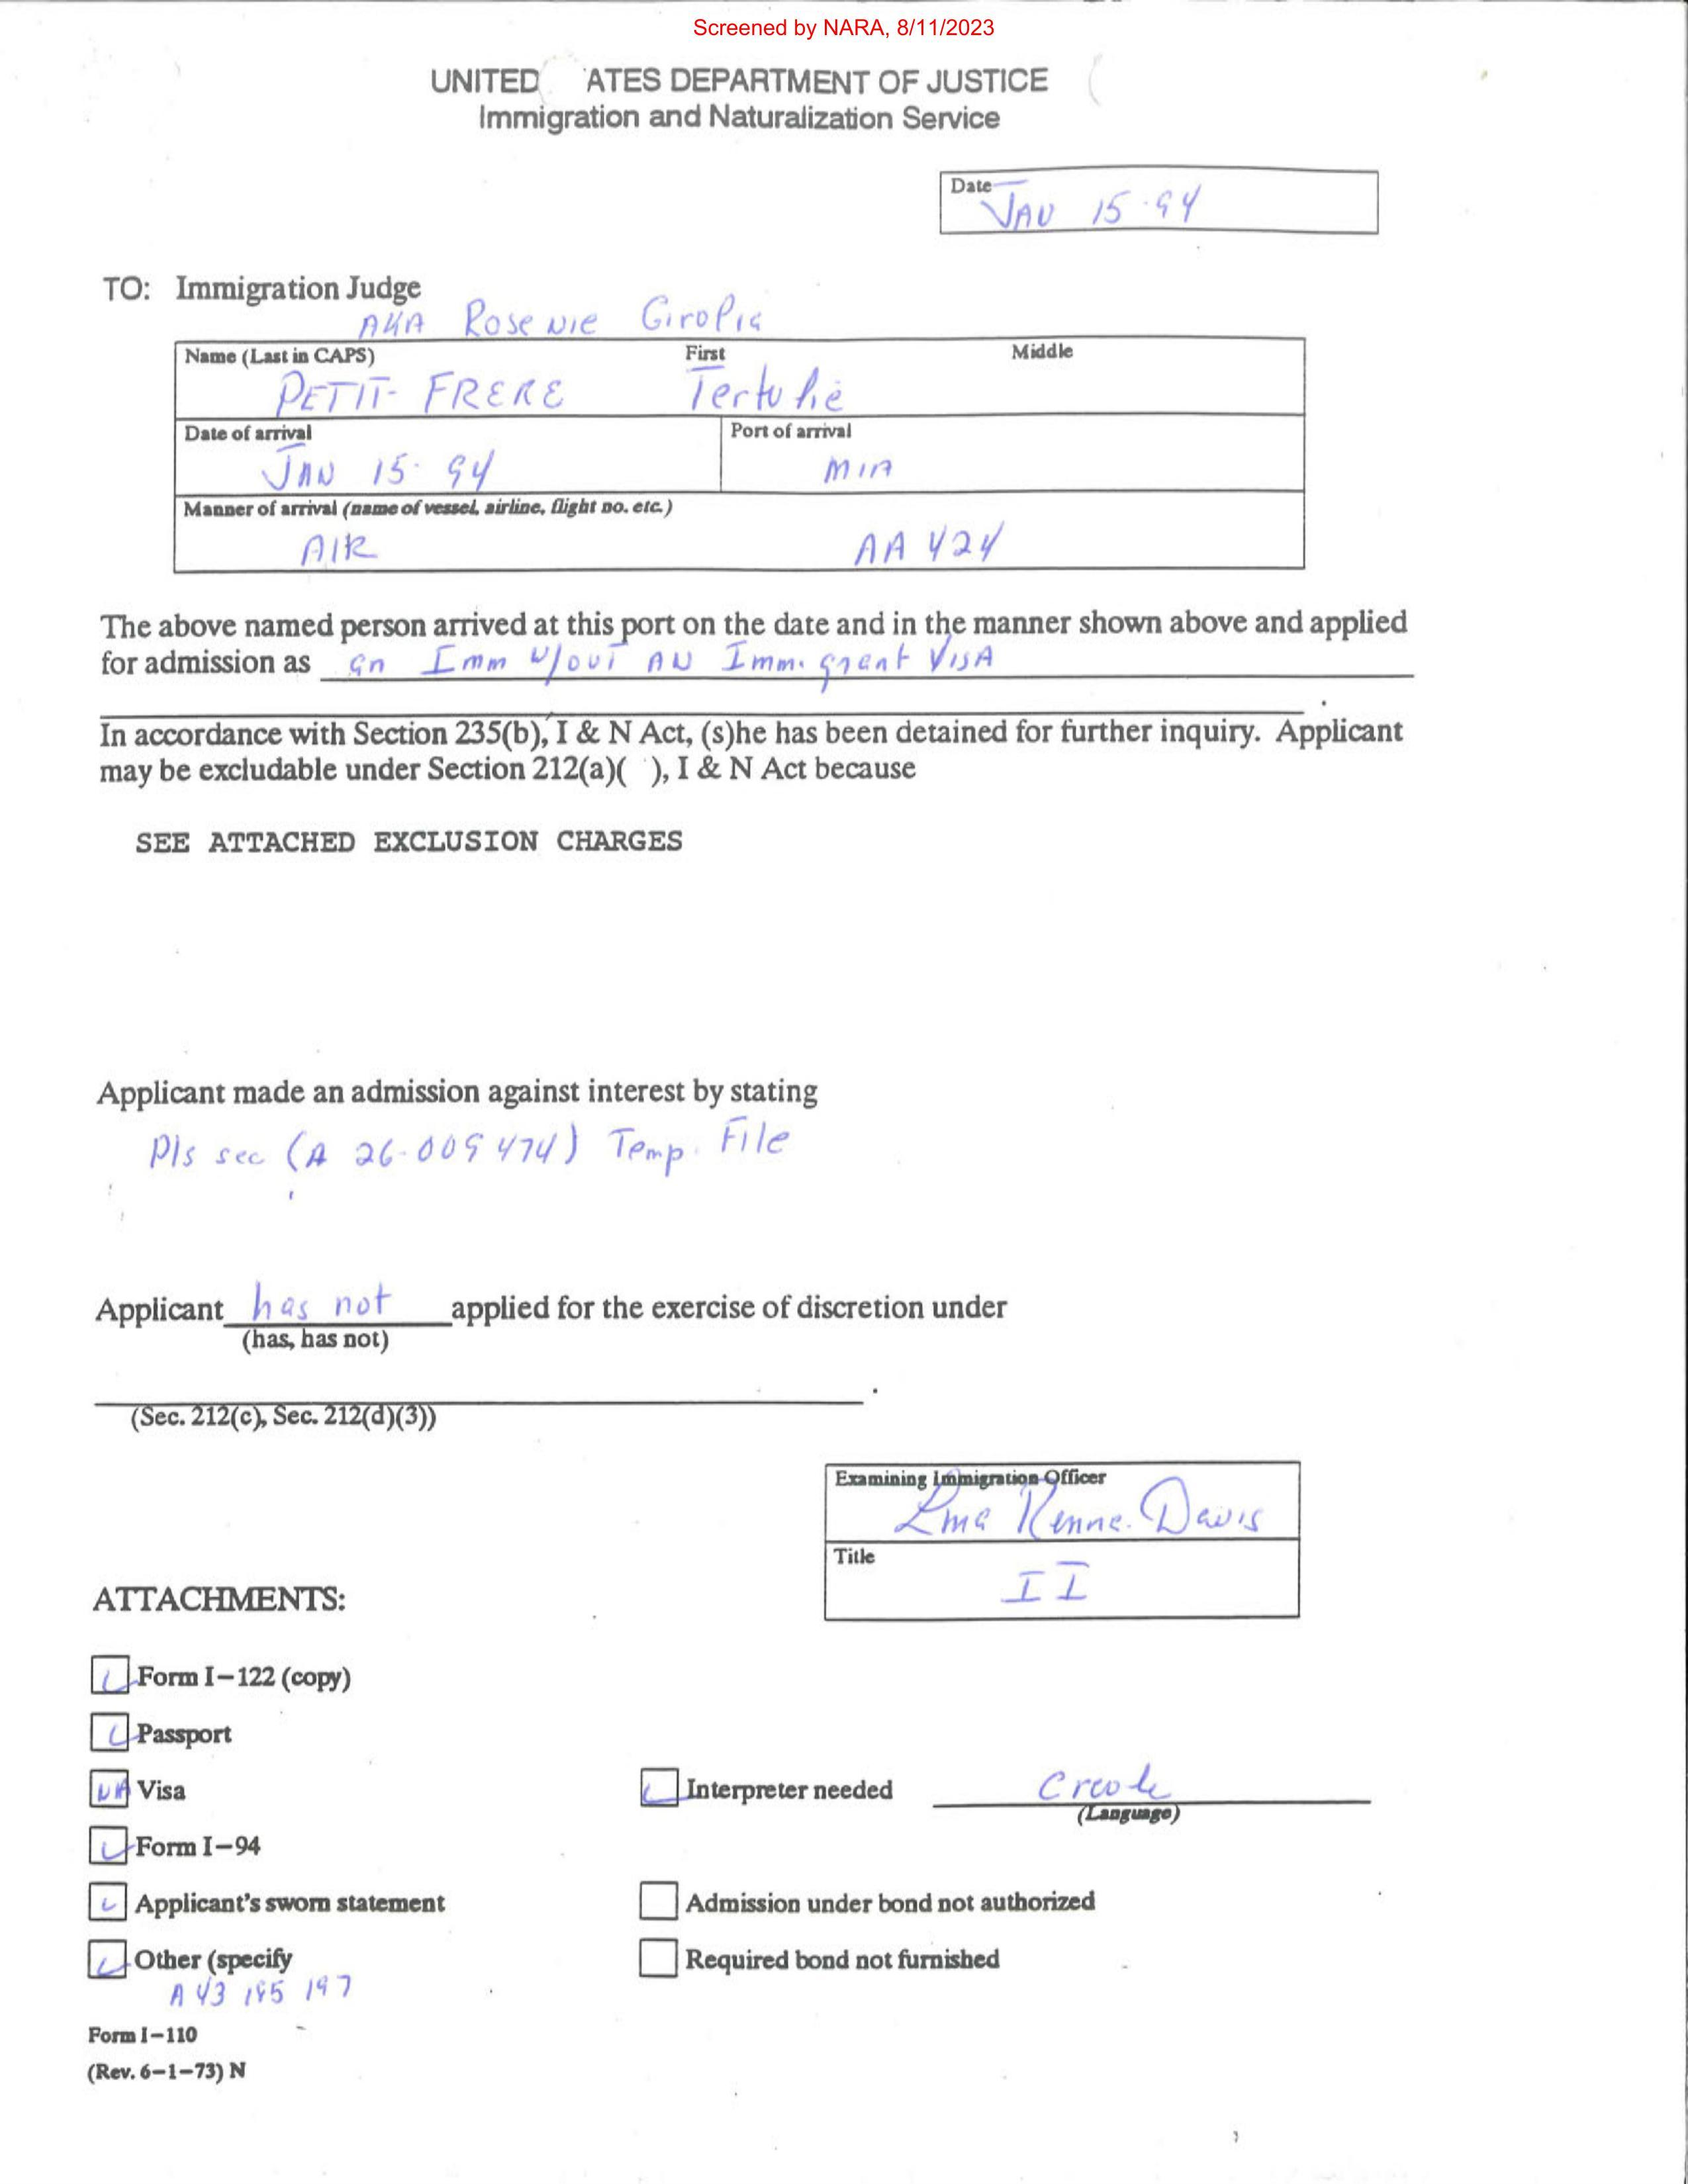 Screened by NARA, 8/11/2023
UNITED ATES DEPARTMENT OF JUSTICE
Immigration and Naturalization Service
Date
JAN 15-94
TO: Immigration Judge
AKA Rose Nie
Name (Last in CAPS) First Middle
PETIT-FRERE Tertulie
Date of arrival Port of arrival
JAN 15-94 MIA
Manner of arrival (name of vessel, airline, flight no. etc.)
AIR AA 424
The above named person arrived at this port on the date and in the manner shown above and applied
for admission as an Imm w/out AN Immigrant VISA
.
In accordance with Section 235(b), I & N Act, (s)he has been detained for further inquiry. Applicant
may be excludable under Section 212(a)( ), I & N Act because
SEE ATTACHED EXCLUSION CHARGES
Applicant made an admission against interest by stating
Pls see (A 26-009 474) Temp. File
Applicant has not applied for the exercise of discretion under
(has, has not)
.
(Sec. 212(c), Sec. 212(d)(3))
Examining Immigration Officer
Davis
Title
II
ATTACHMENTS:
Form I-122 (copy)
Passport
NA Visa
Interpreter needed Creole
(Language)
Form I-94
Applicant's sworn statement
Admission under bond not authorized
Other (specify
Required bond not furnished
A 43 195 197
Form I-110
(Rev. 6-1-73) N